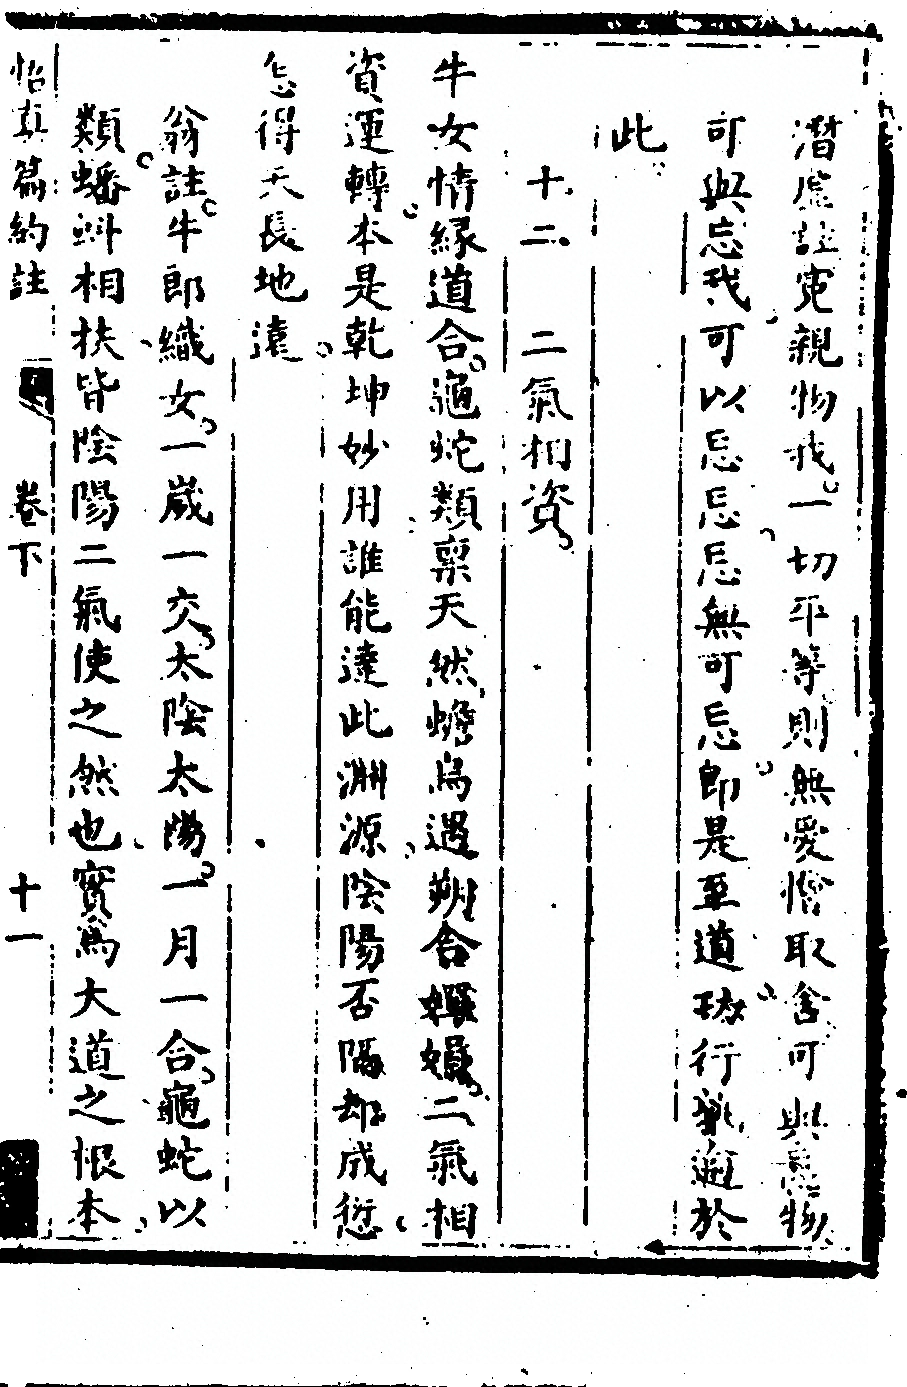 潛虛註寃親物我一切平等則無愛憎取舍可與忘物
可與忘我可以忘忘忘無可忘即是至道功行孰逾於
此
十二 二氣相資
牛女情緣道合龜蛇類稟天然蟾烏遇朔合嬋娟二氣相
資運轉本是乾坤妙用誰能達此淵源陰陽否隔却成愆
怎得天長地遠
翁註牛郎織女一歲一交太陰太陽一月一合龜蛇以
類蟠蚪相扶皆陰陽二氣使之然也實爲大道之根本
悟真篇約註 卷下 十一